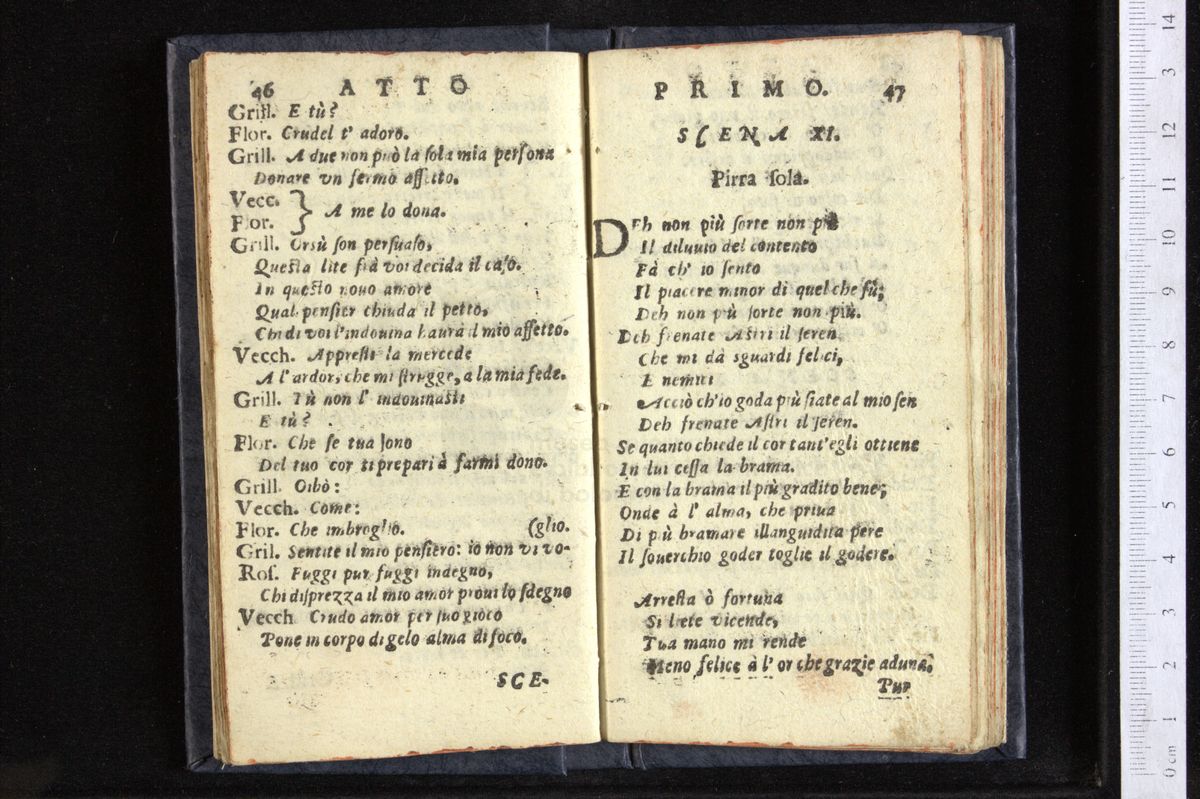 46 ATTO
Grill. E tù?
Flor. Crudel t' adoro.
Grill. A due non può la ſola mia perſona
Donare vn fermo affetto.
Vecc.
Flor. } A me lo dona.
Grill. Orsù ſon perſuaſo,
Queſta lite frà voi decida il caſo.
In queſto nouo amore
Qual penſier chiuda il petto,
Chi di voi l'indouina haurà il mio affetto.
Vecch. Appreſti la mercede
A l'ardor, che mi ſtrugge, a la mia fede.
Grill. Tù non l' indouinaſti
E tù?
Flor. Che ſe tua ſono
Del tuo cor ti prepari à farmi dono.
Grill. Oibò:
Vecch. Come:
Flor. Che imbroglio. (glio.
Gril. Sentite il mio penſiero: io non vi vo-
Roſ. Fuggi pur fuggi indegno,
Chi diſprezza il mio amor proui lo ſdegno
Vecch Crudo amor per ſuo gioco
Pone in corpo di gelo alma di foco.
SCE-
PRIMO. 47
SCENA XI.
Pirra ſola.
DEh non più ſorte non più
Il diluuio del contento
Fà ch' io ſento
Il piacere minor di quel che fù;
Deh non più ſorte non più.
Deh frenate Aſtri il ſeren,
Che mi dà sguardi felici,
E nemici
Acciò ch'io goda più ſiate al mio ſen
Deh frenate Aſtri il ſeren.
Se quanto chiede il cor tant'egli ottiene
In lui ceſſa la brama.
E con la brama il più gradito bene;
Onde à l' alma, che priua
Di più bramare illanguidita pere
Il ſouerchio goder toglie il godere.
Arreſta ò fortuna
Si liete vicende,
Tua mano mi rende
Meno felice à l' or che grazie aduna,
Pur